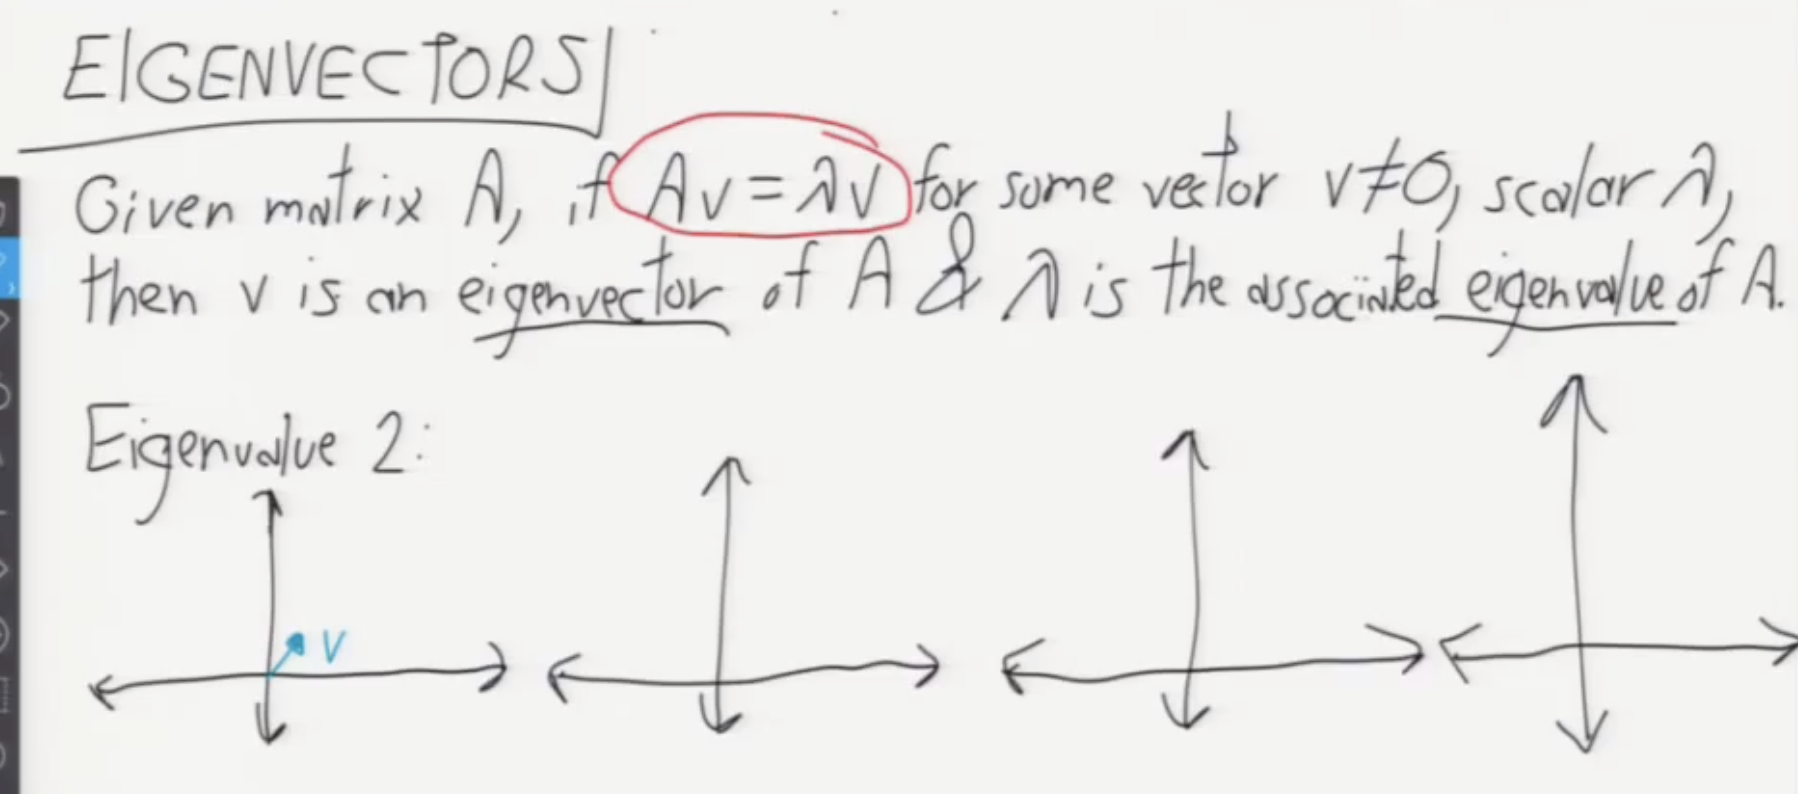 EIGENVECTORS
Given matrix A, if Av = λv for some vector v≠0, scalar λ,
then v is an eigenvector of A & λ is the associated eigenvalue of A.
Eigenvalue 2:
v